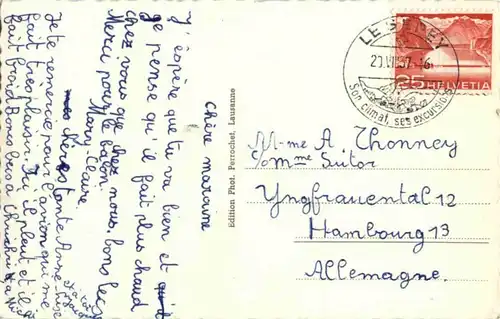 Chère marraine
J'éspère que tu va bien et
je pense qu'il fait plus chaud
chez vous que chez nous, bons
Merci pour le balon.
Mary-Claire
tante Anne
Je te remercie pour l'avion qui me
fait tres plaisir. Ici il pleut et il
fait froid.
Edition Phot. Perrochet, Lausanne
LE S
20.VII.57.-16
Son climat, ses excursions
25 HELVETIA
M-me A Thonney
s/o Mme Suitor
Yngfrauental 12
Hambourg 13
Allemagne.